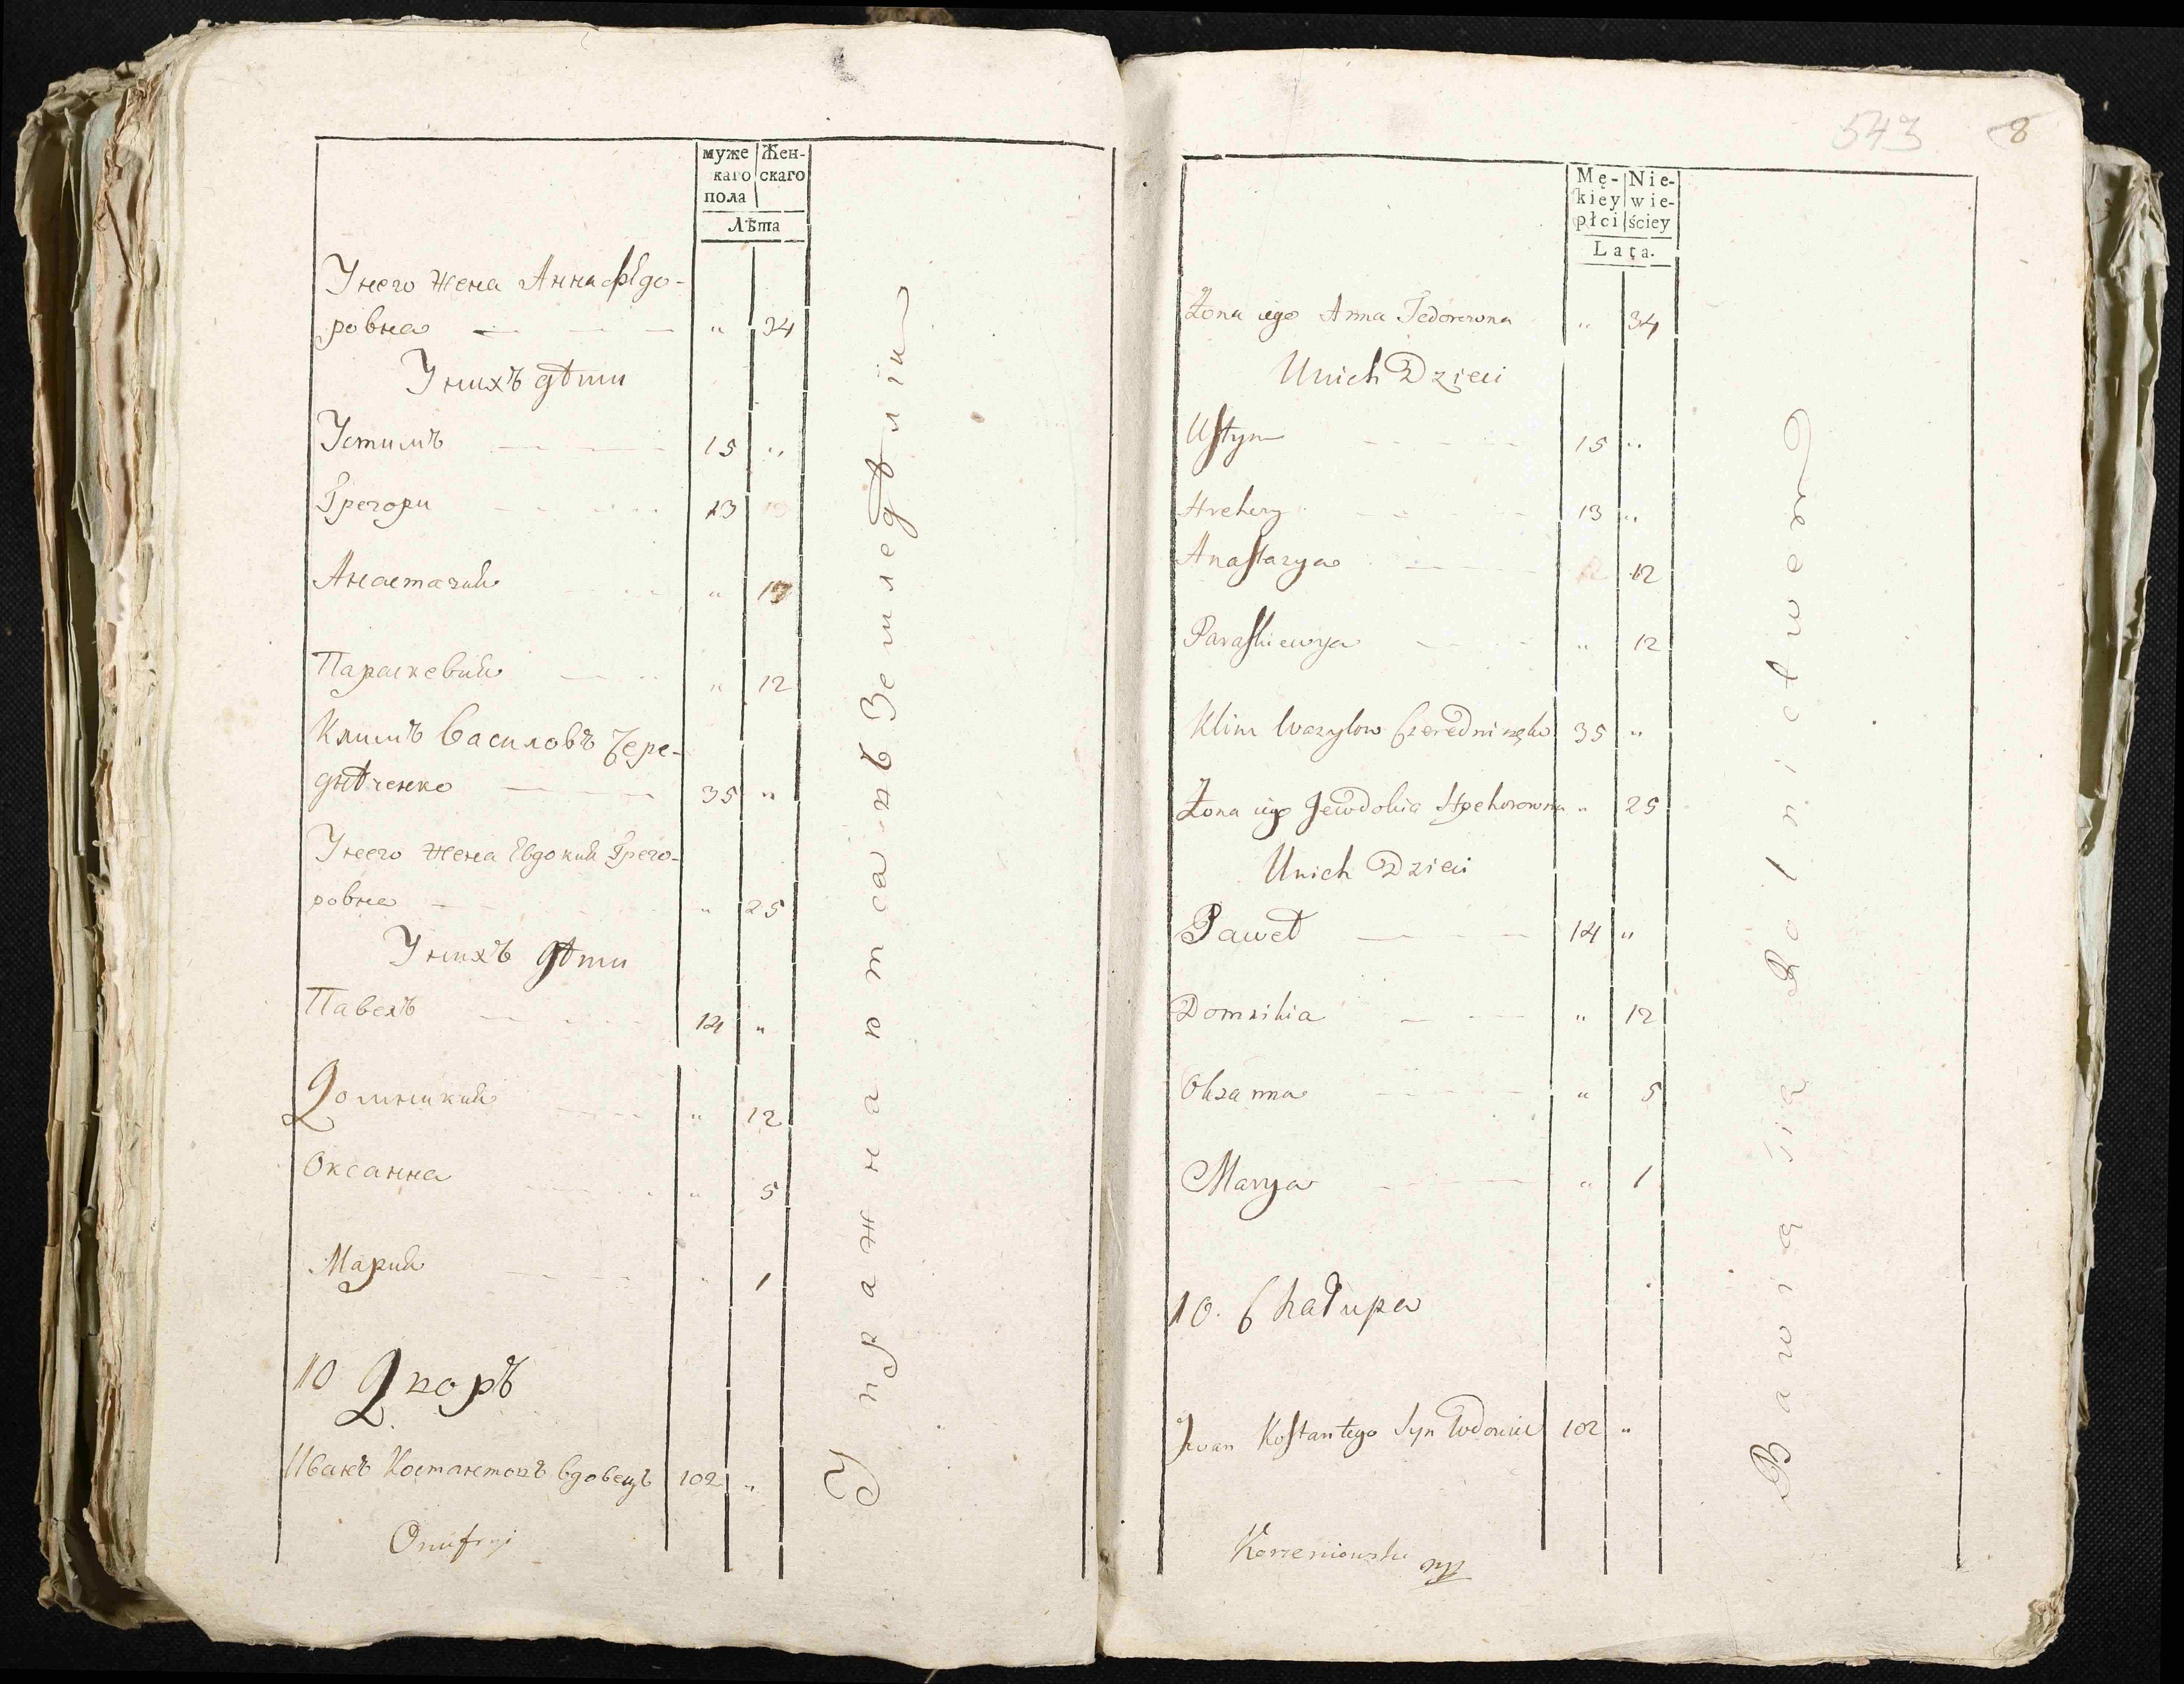 муже Жен-
каго скаго
пола
Лѣта
У него жена Анна Федо-
ровна — — — " 34
У нихъ дѣти
Устимъ 15 "
Грегори 13
Анастазия " 13
Параскевия " 12
Климъ Василовъ Чере-
днѣченко 35 "
У него жена Евдокия Грего-
ровна " 25
У нихъ дѣти
Павелъ 14 "
Домникия " 12
Оксанна " 5
Мария " 1
10 Дворъ
Иванъ Костантовъ вдовецъ 102 "
Onufryi
Упражнаютса въ Земледѣлiи
543 8
Mę- Nie-
kiey wie-
płci ściey
Lata.
Żona iego Anna Fedorowna " 34
Unich Dzieci
Ustym 15 "
Hrehory 13 "
Anastazya 12
Paraskiewya " 12
Klim Wazylow Czeredniczęko 35 "
Żona iego Jewdokia Hrehorowna " 25
Unich Dzieci
Paweł 14 "
Domnikia " 12
Oksanna " 5
Marya " 1
10. Chałupa
Iwan Kostantego Syn Wdowiec 102 "
Korzeniowski mp
Bawią się Rolnictwem